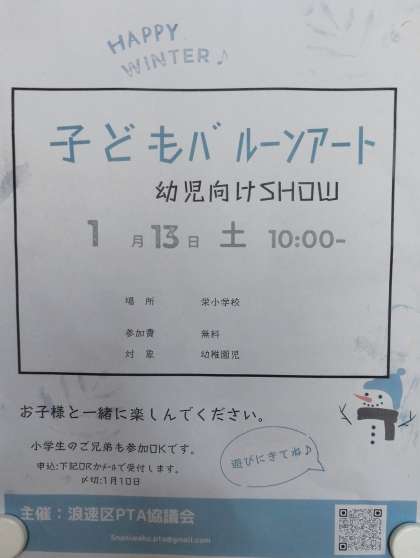 HAPPY
WINTER♪
子どもバルーンアート
幼児向けSHOW
1月13日 土 10:00-
場 所 栄小学校
参加費 無料
対 象 幼稚園児
お子様と一緒に楽しんでください。
小学生のご兄弟も参加OKです。
申込:下記QRかメールで受付します。
〆切:1月10日
遊びにきてね♪
主催:浪速区PTA協議会